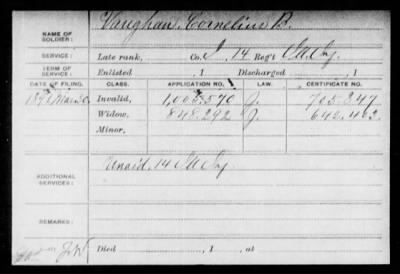 NAME OF SOLDIER: Vaughan, Cornelius B.
SERVICE: Late rank, Co. I, 14 Reg't Ill Cy.
TERM OF SERVICE: Enlisted , 1 Discharged , 1
DATE OF FILING. CLASS. APPLICATION NO. LAW. CERTIFICATE NO.
Invalid, J. 705.347
Widow, 848.292 J. 642.462
Minor,
ADDITIONAL SERVICES: Unas'd. 14 Ill Cy
REMARKS:
Died , 1 , at